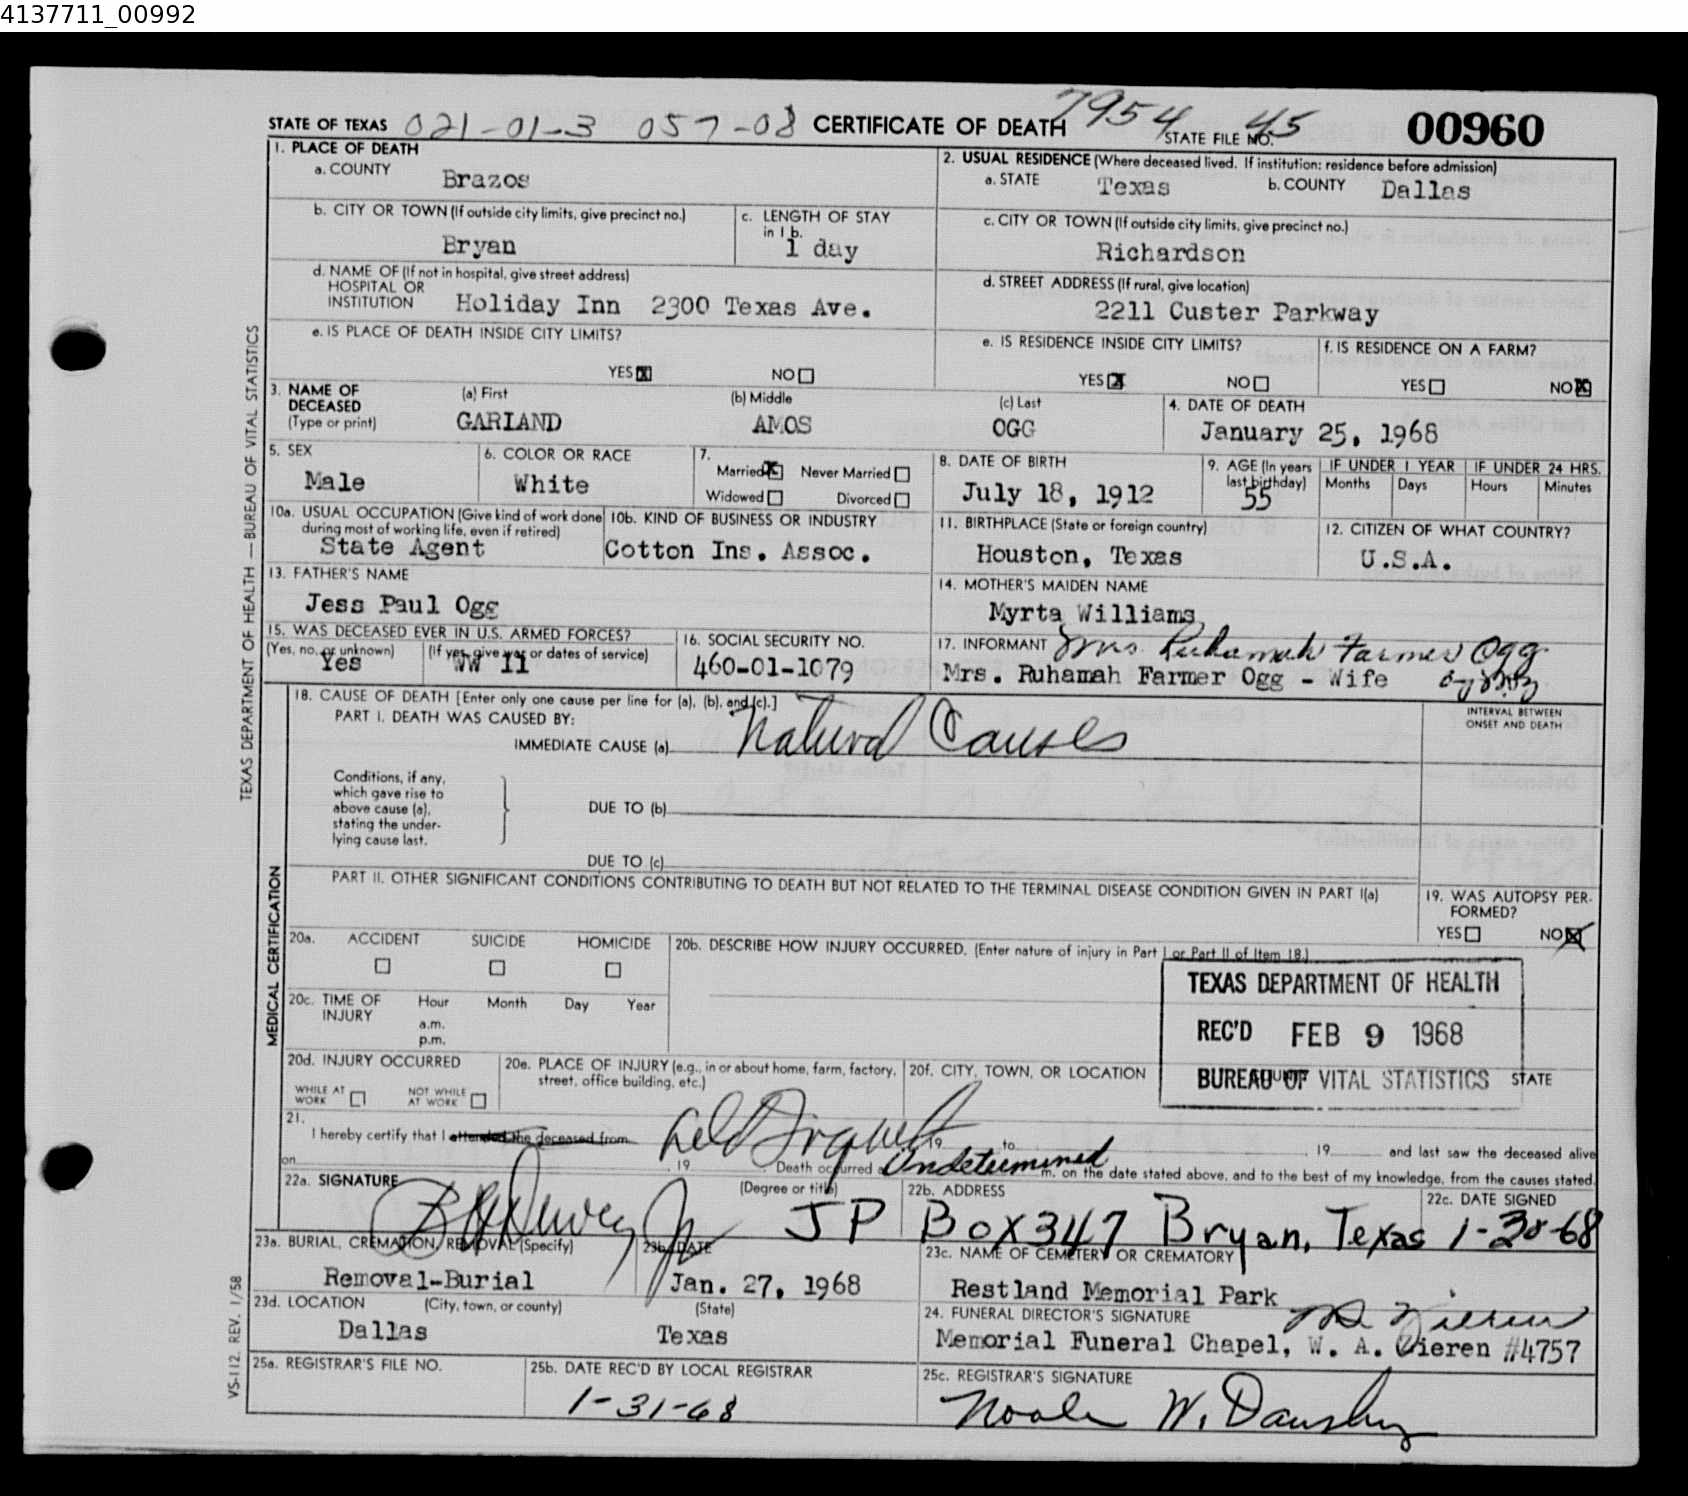 4137711_00992
STATE OF TEXAS 021-01-3 057-08 CERTIFICATE OF DEATH 7954 STATE FILE NO. 45 00960
1. PLACE OF DEATH
a. COUNTY Brazos
2. USUAL RESIDENCE (Where deceased lived. If institution: residence before admission)
a. STATE Texas b. COUNTY Dallas
b. CITY OR TOWN (If outside city limits, give precinct no.) Bryan
c. LENGTH OF STAY in 1 b. 1 day
c. CITY OR TOWN (If outside city limits, give precinct no.) Richardson
d. NAME OF (If not in hospital, give street address) HOSPITAL OR INSTITUTION Holiday Inn 2300 Texas Ave.
d. STREET ADDRESS (If rural, give location) 2211 Custer Parkway
e. IS PLACE OF DEATH INSIDE CITY LIMITS?
YES X NO
e. IS RESIDENCE INSIDE CITY LIMITS?
YES X NO
f. IS RESIDENCE ON A FARM?
YES NO X
3. NAME OF DECEASED (Type or print)
(a) First GARLAND (b) Middle AMOS (c) Last OGG
4. DATE OF DEATH January 25, 1968
5. SEX Male
6. COLOR OR RACE White
7. Married X Never Married
Widowed Divorced
8. DATE OF BIRTH July 18, 1912
9. AGE (In years last birthday) 55
IF UNDER 1 YEAR Months Days
IF UNDER 24 HRS. Hours Minutes
10a. USUAL OCCUPATION (Give kind of work done during most of working life, even if retired) State Agent
10b. KIND OF BUSINESS OR INDUSTRY Cotton Ins. Assoc.
11. BIRTHPLACE (State or foreign country) Houston, Texas
12. CITIZEN OF WHAT COUNTRY? U.S.A.
13. FATHER'S NAME Jess Paul Ogg
14. MOTHER'S MAIDEN NAME Myrta Williams
15. WAS DECEASED EVER IN U.S. ARMED FORCES?
(Yes, no, or unknown) Yes (If yes, give war or dates of service) WW II
16. SOCIAL SECURITY NO. 460-01-1079
17. INFORMANT Mrs. Ruhamah Farmer Ogg
Mrs. Ruhamah Farmer Ogg - Wife
18. CAUSE OF DEATH [Enter only one cause per line for (a), (b), and (c).]
PART I. DEATH WAS CAUSED BY:
IMMEDIATE CAUSE (a) Natural Causes
INTERVAL BETWEEN ONSET AND DEATH
Conditions, if any, which gave rise to above cause (a), stating the underlying cause last.
DUE TO (b)
DUE TO (c)
PART II. OTHER SIGNIFICANT CONDITIONS CONTRIBUTING TO DEATH BUT NOT RELATED TO THE TERMINAL DISEASE CONDITION GIVEN IN PART I(a)
19. WAS AUTOPSY PERFORMED?
YES NO X
20a. ACCIDENT SUICIDE HOMICIDE
20b. DESCRIBE HOW INJURY OCCURRED. (Enter nature of injury in Part I or Part II of Item 18.)
20c. TIME OF INJURY Hour Month Day Year
a.m.
p.m.
TEXAS DEPARTMENT OF HEALTH
REC'D FEB 9 1968
BUREAU OF VITAL STATISTICS
20d. INJURY OCCURRED
WHILE AT WORK NOT WHILE AT WORK
20e. PLACE OF INJURY (e.g., in or about home, farm, factory, street, office building, etc.)
20f. CITY, TOWN, OR LOCATION STATE
21. I hereby certify that I attended the deceased from Held Inquest 19 to 19 and last saw the deceased alive
on 19 Death occurred a Undetermined m. on the date stated above, and to the best of my knowledge, from the causes stated.
22a. SIGNATURE (Degree or title) JP
22b. ADDRESS Box 347 Bryan, Texas
22c. DATE SIGNED 1-30-68
23a. BURIAL, CREMATION, REMOVAL (Specify) Removal-Burial
23b. DATE Jan. 27, 1968
23c. NAME OF CEMETERY OR CREMATORY Restland Memorial Park
23d. LOCATION (City, town, or county) (State)
Dallas Texas
24. FUNERAL DIRECTOR'S SIGNATURE
Memorial Funeral Chapel, W. A. Vieren #4757
25a. REGISTRAR'S FILE NO.
25b. DATE REC'D BY LOCAL REGISTRAR 1-31-68
25c. REGISTRAR'S SIGNATURE W. Dansby
TEXAS DEPARTMENT OF HEALTH — BUREAU OF VITAL STATISTICS
MEDICAL CERTIFICATION
VS-112, REV. 1/58